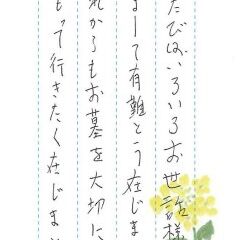 たびはいろいろお世話様
まして有難とう在じま
れからもお墓を大切に
もって行きたく在じま